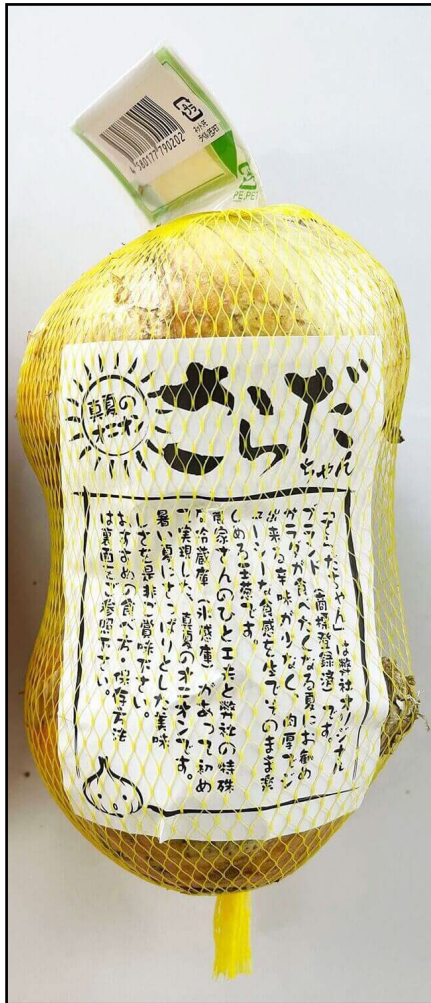 4580177790202
ネット:PE
ラベル:PE,PET
PE,PET
真夏の
オニオン
さらだ
ちゃん
「さらだちゃん」は弊社オリジナル
ブランド(商標登録済)です。
サラダが食べたくなる夏にお勧め
出来る辛味が少なく、肉厚でジュ
ーシーな食感を生でそのまま楽
しめる玉葱です。
農家さんのひと工夫と弊社の特殊
な冷蔵庫「氷感庫」があって初め
て実現した、真夏のオニオンです。
暑い夏にさっぱりとした美味
しさを是非ご賞味下さい。
おすすめの食べ方・保存方法
は裏面をご参照下さい。